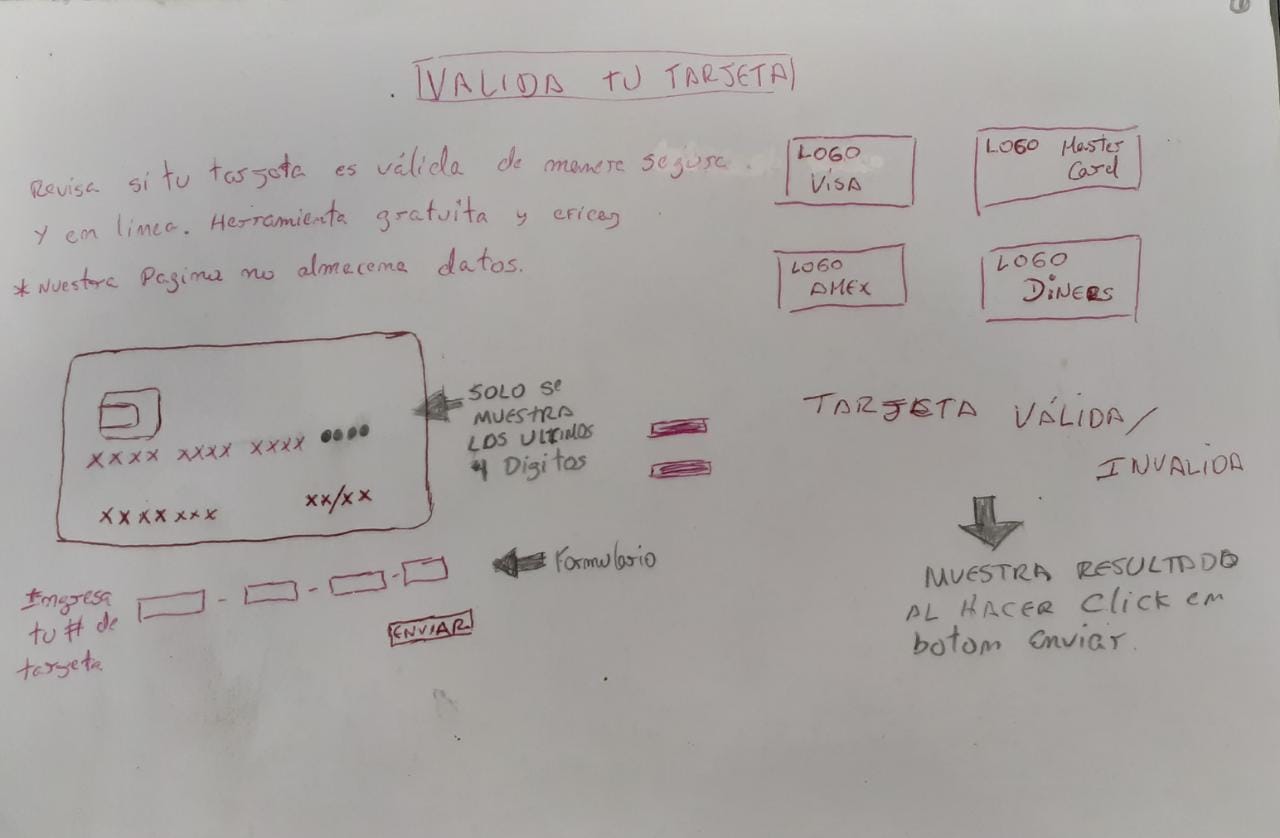 VALIDA TU TARJETA
Revisa si tu targeta es válida de manera segura.
y en linea. Herramienta gratuita y eficaz
* Nuestra Pagina no almacena datos.
LOGO
VISA
LOGO Master
Card
LOGO
AMEX
LOGO
DINERS
XXXX XXXX XXXX ●●●●
XXXXXXX
XX/XX
SOLO SE
MUESTRA
LOS ULTIMOS
4 Digitos
=
TARJETA VÁLIDA/
INVALIDA
MUESTRA RESULTADO
AL HACER Click en
boton enviar.
Ingresa
tu # de
targeta
- - -
Formulario
ENVIAR